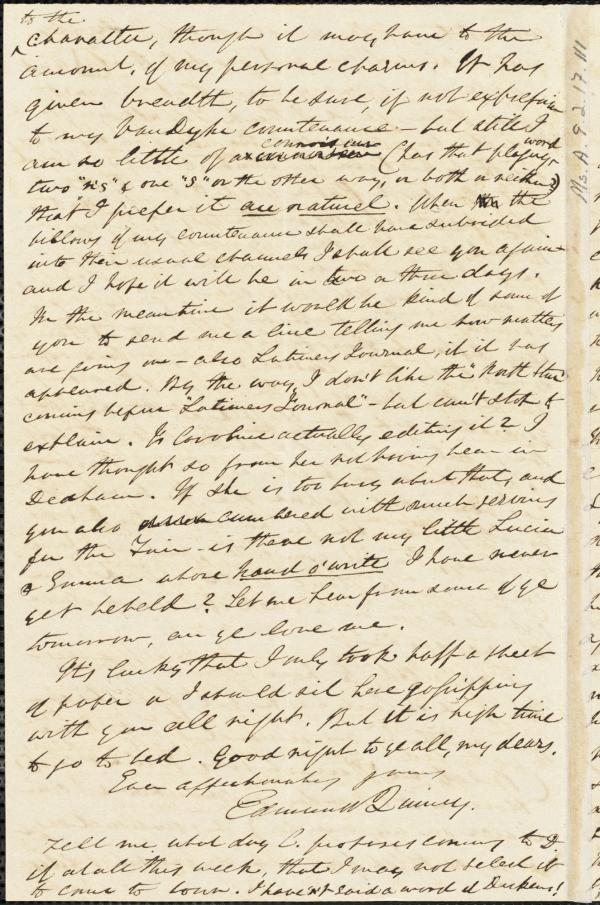 to the
^ character, though it may have to the
amount, of my personal charms. It has
given breadth, to be sure, if not expression
to my VanDyke countenance – but still I
am so little of a connoisseur (has that plaguy word
two "n's" & one "s" or the other way, or both a
that I prefer it au naturel. When the
billows of my countenance shall have subsided
into their usual channels I shall see you again –
and I hope it will be in two or three days.
In the meantime it would be kind of some of
you to send me a line telling me how matters
are going on – also Latimer Journal, if it has
appeared. By the way, I don't like the "North Star"
coming before "Latimer Journal" – but can't stop to
explain. Is Caroline actually editing it? I
have thought so from her not having been in
Dedham. If she is too busy about that, and
you also cumbered with much serving
for the Fair – is there not my little Lucia
& Emma whose hand o' write I have never
yet beheld? Let me hear from some of ye
tomorrow, an ye love me.
It's lucky that I only took half a sheet
of paper or I should sit here gossipping
with you all night. But it is high time
to go to bed. Good night to ye all, my dears.
Ever affectionately yours
Edmund Quincy.
Tell me what day C. proposes coming to D.
if at all this week, that I may not select it
to come to town. I haven't said a word of Dickens!
Ms. A. 9. 2. 17. 111